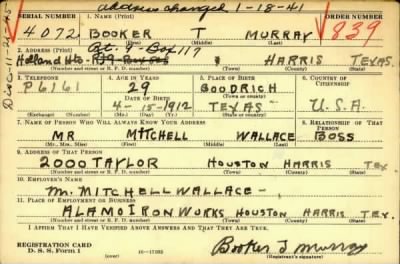 address changed 1-18-41
SERIAL NUMBER 1. NAME (Print) ORDER NUMBER
4072 BOOKER T MURRAY 839
(First) (Middle) (Last)
2. ADDRESS (Print) Rt. 9-Box 117
Holland HARRIS TEXAS.
(Number and street or R. F. D. number) (Town) (County) (State)
3. TELEPHONE 4. AGE IN YEARS 5. PLACE OF BIRTH 6. COUNTRY OF CITIZENSHIP
P6161 29 GOODRICH
DATE OF BIRTH (Town or county)
4-15-1912 TEXAS U.S.A.
(Exchange) (Number) (Mo.) (Day) (Yr.) (State or country)
7. NAME OF PERSON WHO WILL ALWAYS KNOW YOUR ADDRESS 8. RELATIONSHIP OF THAT PERSON
MR MITCHELL WALLACE BOSS
(Mr., Mrs., Miss) (First) (Middle) (Last)
9. ADDRESS OF THAT PERSON
2000 TAYLOR HOUSTON HARRIS TEX
(Number and street or R. F. D. number) (Town) (County) (State)
10. EMPLOYER'S NAME
M. MITCHELL WALLACE-
11. PLACE OF EMPLOYMENT OR BUSINESS
ALAMO IRON WORKS HOUSTON HARRIS TEX.
(Number and street or R. F. D. number) (Town) (County) (State)
I AFFIRM THAT I HAVE VERIFIED ABOVE ANSWERS AND THAT THEY ARE TRUE.
REGISTRATION CARD
D. S. S. FORM 1 (over) 16-17105 Booker T Murray
(Registrant's signature)